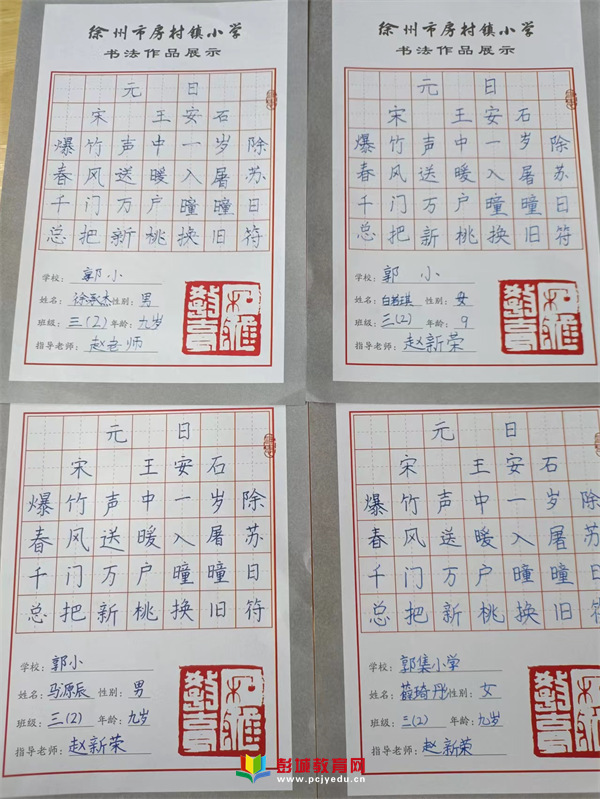 徐州市房村镇小学
书法作品展示
元日
宋 王安石
爆竹声中一岁除
春风送暖入屠苏
千门万户曈曈日
总把新桃换旧符
学校：郭小
姓名：徐承杰 性别：男
班级：三(2) 年龄：九岁
指导老师：赵老师
徐州市房村镇小学
书法作品展示
元日
宋 王安石
爆竹声中一岁除
春风送暖入屠苏
千门万户曈曈日
总把新桃换旧符
学校：郭小
姓名：白 性别：女
班级：三(2) 年龄：9
指导老师：赵新荣
元日
宋 王安石
爆竹声中一岁除
春风送暖入屠苏
千门万户曈曈日
总把新桃换旧符
学校：郭小
姓名：马源辰 性别：男
班级：三(2) 年龄：九岁
指导老师：赵新荣
元日
宋 王安石
爆竹声中一岁除
春风送暖入屠苏
千门万户曈曈日
总把新桃换旧符
学校：郭集小学
姓名：薛琦彤 性别：女
班级：三(2) 年龄：九岁
指导老师：赵新荣
彭城教育网
www.pcjyedu.cn